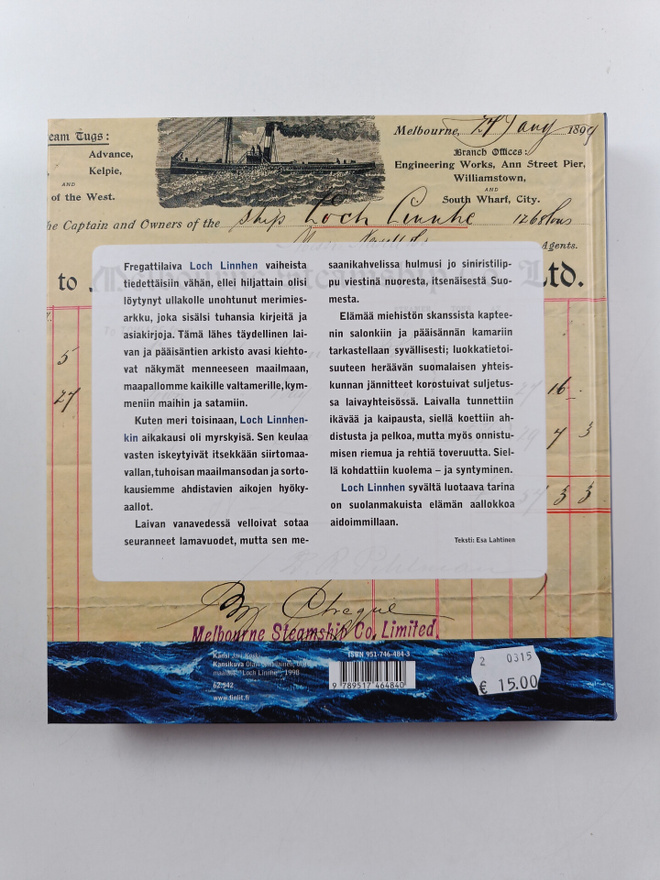 eam Tugs:
Advance,
Kelpie,
AND
of the West.
Melbourne, 27 Jany 1899
Branch Offices:
Engineering Works, Ann Street Pier,
Williamstown,
AND
South Wharf, City.
he Captain and Owners of the ship Loch Linnhe 1268 tons
Agents.
to Melbourne Steamship Co. Ltd.
Fregattilaiva Loch Linnhen vaiheista
tiedettäisiin vähän, ellei hiljattain olisi
löytynyt ullakolle unohtunut merimies-
arkku, joka sisälsi tuhansia kirjeitä ja
asiakirjoja. Tämä lähes täydellinen lai-
van ja pääisäntien arkisto avasi kiehto-
vat näkymät menneeseen maailmaan,
maapallomme kaikille valtamerille, kym-
meniin maihin ja satamiin.
Kuten meri toisinaan, Loch Linnhen-
kin aikakausi oli myrskyisä. Sen keulaa
vasten iskeytyivät itsekkään siirtomaa-
vallan, tuhoisan maailmansodan ja sorto-
kausiemme ahdistavien aikojen hyöky-
aallot.
Laivan vanavedessä velloivat sotaa
seuranneet lamavuodet, mutta sen me-
saanikahvelissa hulmusi jo siniristilip-
pu viestinä nuoresta, itsenäisestä Suo-
mesta.
Elämää miehistön skanssista kaptee-
nin salonkiin ja pääisännän kamariin
tarkastellaan syvällisesti; luokkatietoi-
suuteen heräävän suomalaisen yhteis-
kunnan jännitteet korostuivat suljetus-
sa laivayhteisössä. Laivalla tunnettiin
ikävää ja kaipausta, siellä koettiin ah-
distusta ja pelkoa, mutta myös onnistu-
misen riemua ja rehtiä toveruutta. Siel-
lä kohdattiin kuolema – ja syntyminen.
Loch Linnhen syvältä luotaava tarina
on suolanmakuista elämän aallokkoa
aidoimmillaan.
Teksti: Esa Lahtinen
5
27
16
9 3
3 3
By Cheque
Melbourne Steamship Co. Limited.
Kansikuva
"Loch Linnhe", 1990
62.342
www.finlit.fi
ISBN 951-746-484-3
9 789517 464840
2 0315
€ 15.00